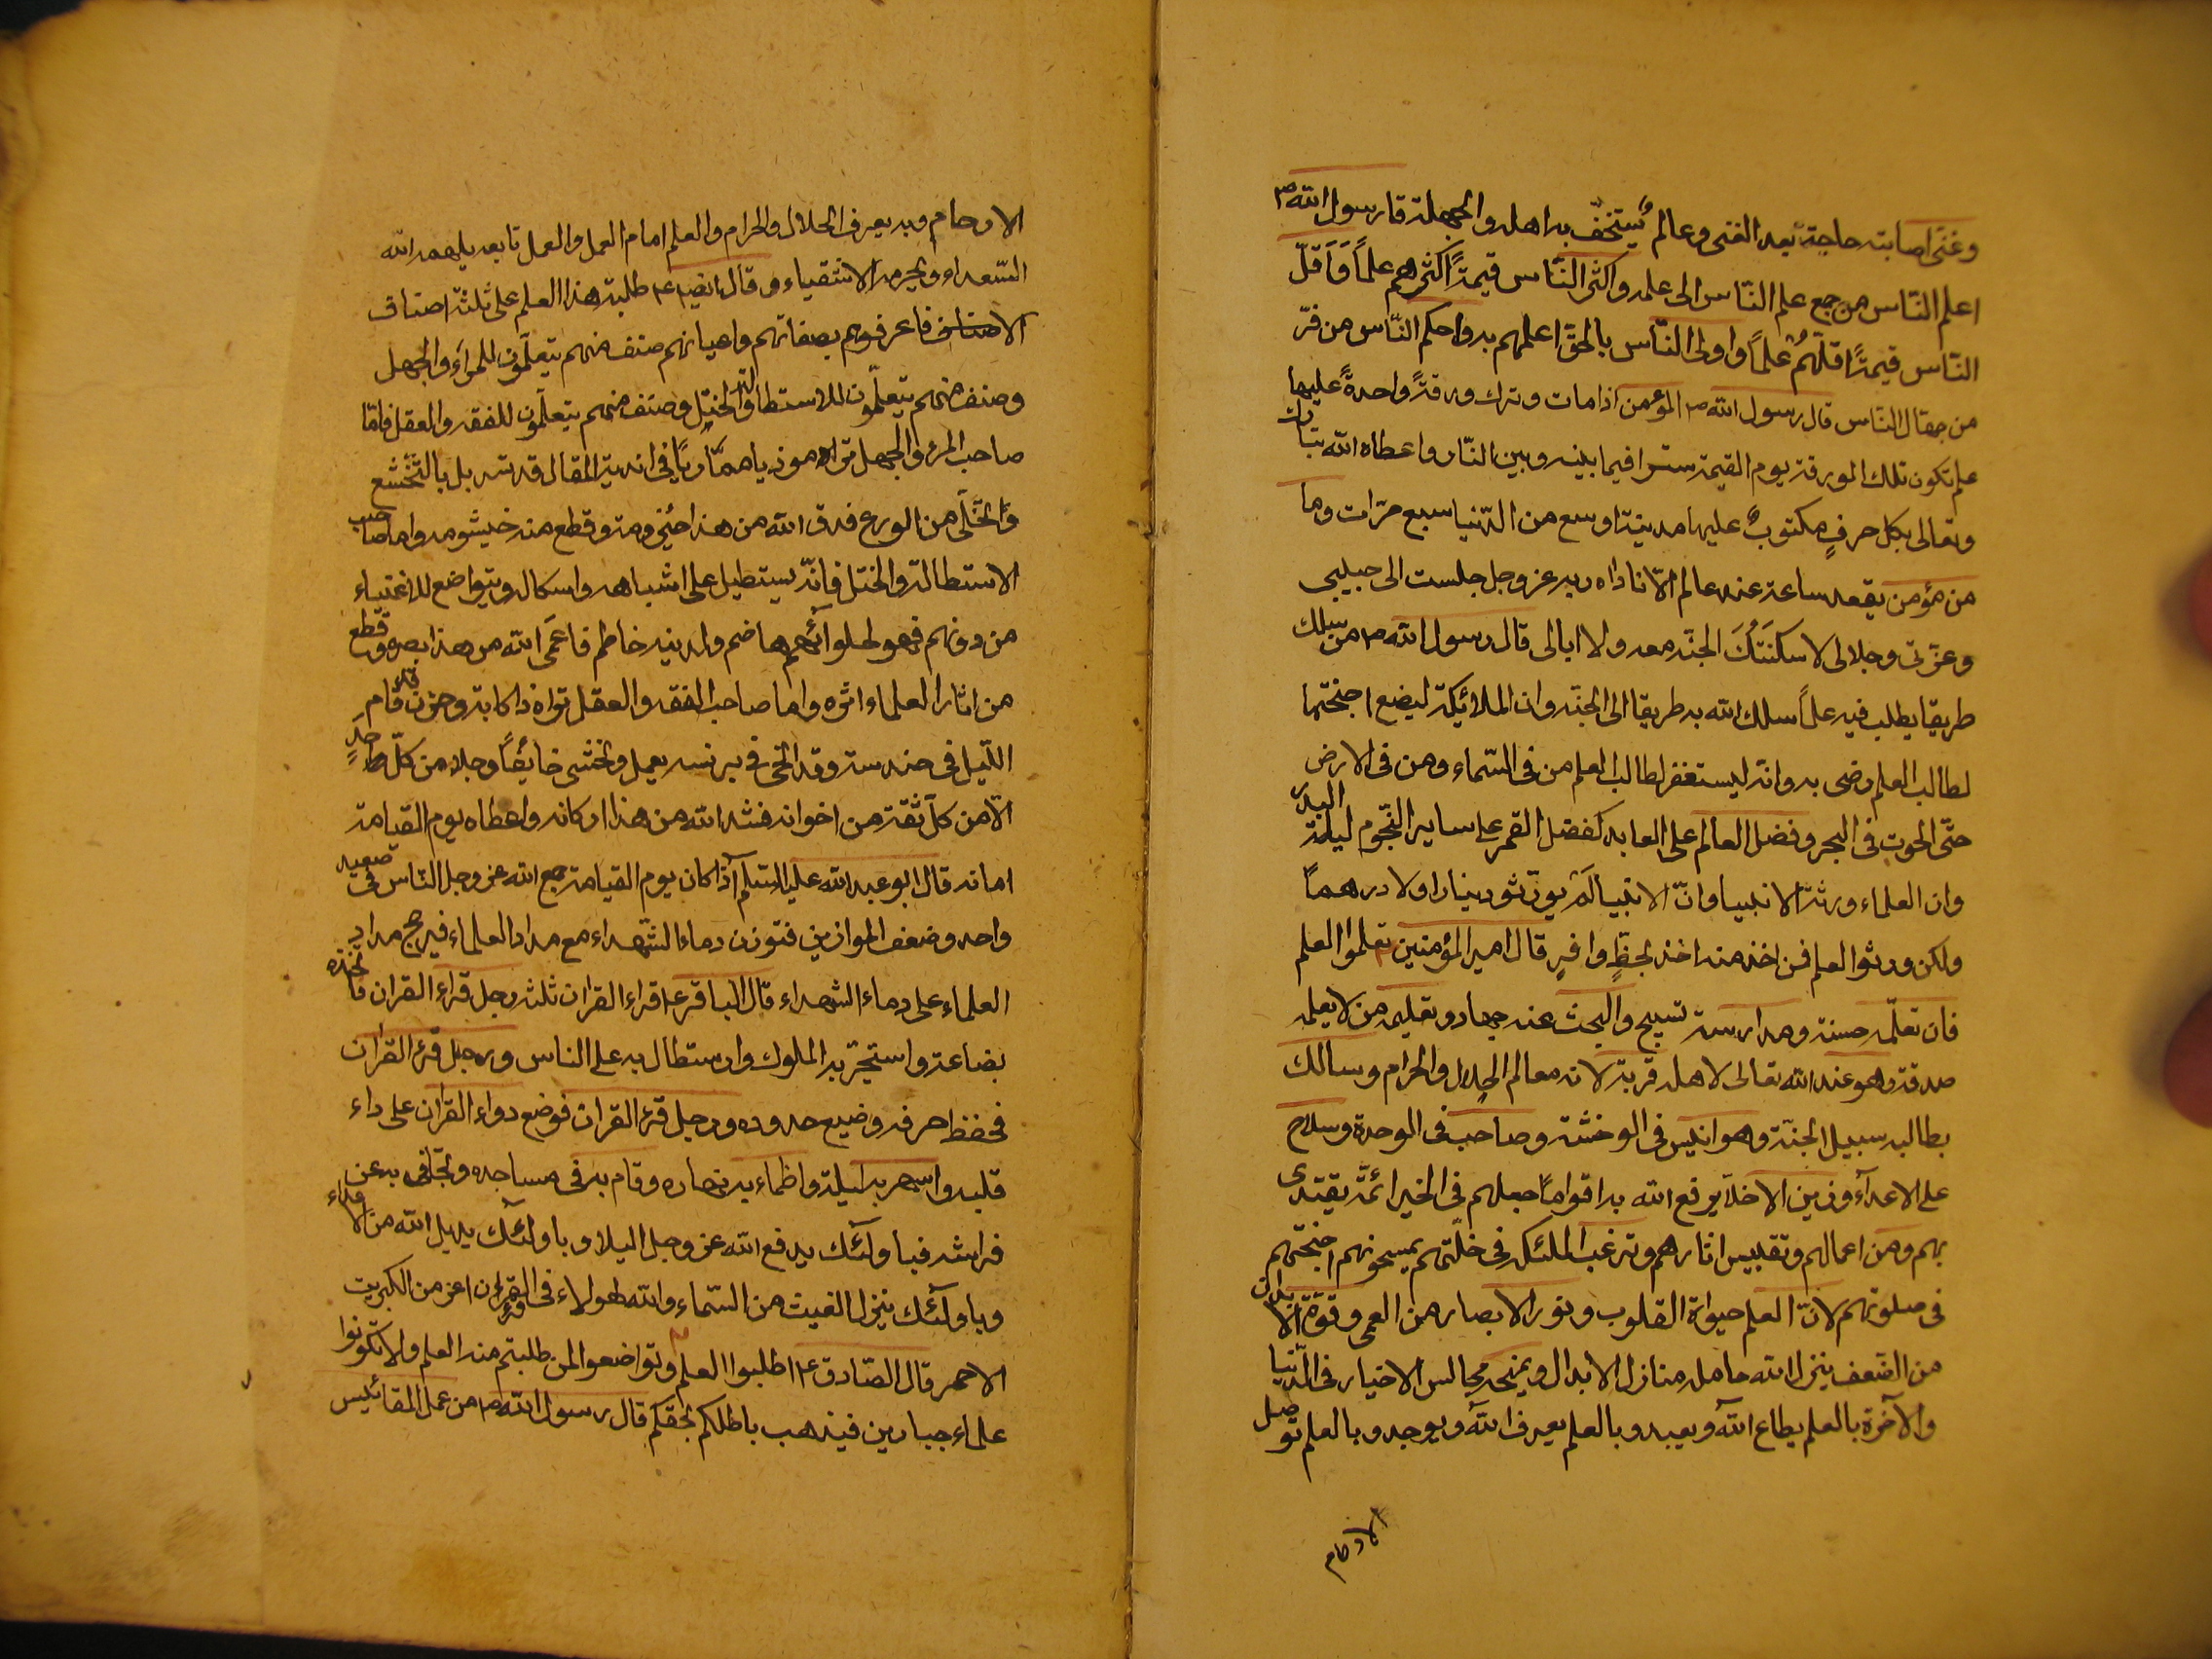 وغنى اصابته حاجة بعد الغنى وعالم يستخف به اهله والجهلة قا رسول الله ص
اعلم الناس من جمع علم الناس الى علمه واكثر الناس قيمتًا اكثرهم علمًا وَاَقلّ
الناس قيمتًا اقلّهُم علمًا واولى الناس بالحق اعلمهم به واحكم الناس من فرّ
من جهال الناس قال رسول الله ص المؤمن اذا مات وترك ورقتً واحدةً عليها
علم تكون تلك الورقة يوم القيمة سترا فيما بينه وبين النار واعطاه الله تبارك
وتعالى بكل حرفٍ مكتوبٌ عليها مدينتا اوسع من الدنيا سبع مرّات وما
من مؤمن يقعد ساعة عند عالم الّا ناداه ربه عز وجل جلست الى حبيبى
وعزتى وجلالى لاسكنَتُكَ الجنّة معه ولا ابالى قال رسول الله ص من سلك
طريقا يطلب فيه علمًا سلك الله به طريقا الى الجنّة وان الملائيكة ليضع اجنحتها
لطالب العلم رضى به وانه ليستغفر لطالب العلم من فى السّماء ومن فى الارض
حتّى الحوت فى البحر وفضل العالم على العابد كفضل القمر على ساير النّجوم ليلة البدر
وان العلماء ورثة الانبيا وانّ الانبيا لَمْ يورّثو دينارا ولا درهمًا
ولكن ورثوا العلم فمن اخذ منه اخذ بحظٍّ وافرٍ قال امير المؤمنين تعلموا العلم
فان تعلّمه حسنة ومدارسته تسبيح والبحث عنه جهاد وتعليمه من لا يعلمه
صدقة وهو عند الله تعالى لاهله قربة لانه معالم الحلال والحرام وسالك
بطالبه سبيل الجنّة وهو انيس فى الوخشة وصاحب فى الوحدة وسلاح
على الاعدآء وزين الاخلّا يرفع الله به اقوامًا جعلهم فى الخير ائمّة يقتدى
بهم ومن اعمالهم وتقلبيس اثارهم وترغب الملئكه فى خلّتهم يمسحونهم اجنحتهم
فى صلوتهم لانّ العلم حيوة القلوب ونور الابصار من العمى وقوّة الابدان
من الضعف ينزل الله حامله منازل الابدال ويمنحه مجالس الاخيار فى الدّنيا
والآخرة بالعلم يطاع الله ويعبد وبالعلم يعرف الله ويوحد وبالعلم توصل
الارحام
الارحام وبه يعرف الحلال والحرام والعلم امام العمل والعمل تابعه يلهمه الله
السّعداء ويحرمه الاشقياء وقال ايضا ع طلبة هذا العلم على ثلثة اصناف
الاصناف فاعرفوهم بصفاتهم واعيانهم صنف منهم يتعلّمون للمرآء والجهل
وصنف منهم يتعلّمون للاستطالة والختل وصنف منهم يتعلّمون للفقه والعقل فامّا
صاحب المرئ والجهل تراه موذيا مماريًا فى اندية المقال قد تسربل بالتّخشع
وتخلّى من الورع فدق الله من هذا حيزومه وقطع منه خيشومه واما صاحب
الاستطالة والختل فانّه يستطيل على اشباهه واسكاله ويتواضع للاغنياء
من دونهم فهو لحلوائهم هاضم ولدينه خاطم فاعَمَى الله من هذا بصره وقطع
من اثار العلماء اثره واما صاحب الفقه والعقل تراه ذاكابة وحزن قد قام
اللّيل فى حندسه وقد انحى فى برنسه يعمل ويخشى خائفًا وجلا من كلّ احدٍ
الّا من كلّ ثقة من اخوانه فشد الله من هذا اركانه واعطاه يوم القيامة
امانه قال ابو عبد الله عليه السّلم اذا كان يوم القيامة جمع الله عز وجل الناس فى صعيد
واحد وضعف الموازين فتوزن دماء الشهداء مع مداد العلماء فيرجح مداد
العلماء على دماء الشهداء قال الباقر ع قراء القران ثلثه رجل قراء القران فاتخذه
بضاعة واستجرّ به الملوك واوستطال به على الناس ورجل قرء القران
فحفظ احرفه وضيع حدوده ورجل قرء القران فوضع دواء القران على داء
قلبه واسهر به ليلة واظماء به نهاره وقام به فى مساجده وتجافى به عن
فراشه فباولئك يدفع الله عز وجل البلا وباولئك يديل الله من الاعداء
وباولئك ينزل الغيث من السّماء والله لهولاء فى قرّاء القران اعز من الكبريت
الاحمر وقال الصّادق ع اطلبوا العلم وتواضعوا لمن طلبتم منه العلم ولا تكونوا
علماء جبارين فيذهب باطلكم بحقكم قال رسول الله ص من عمل المقائيس